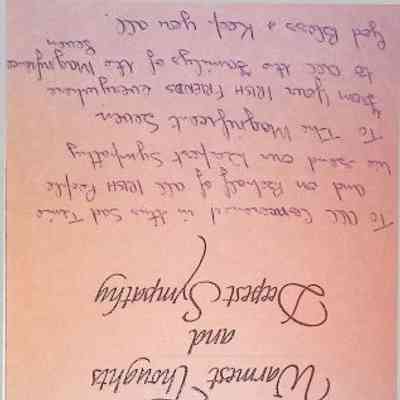 Warmest Thoughts
and
Deepest Sympathy
To all Concerned in this Sad Time
and on Behalf of all IRISH People
we send our Deepest Sympathy
To The Magnificent Seven
From Your IRISH FRIENDS everywhere
to all the Familys of the Magnificent
Seven
God Bless & Keep you all.